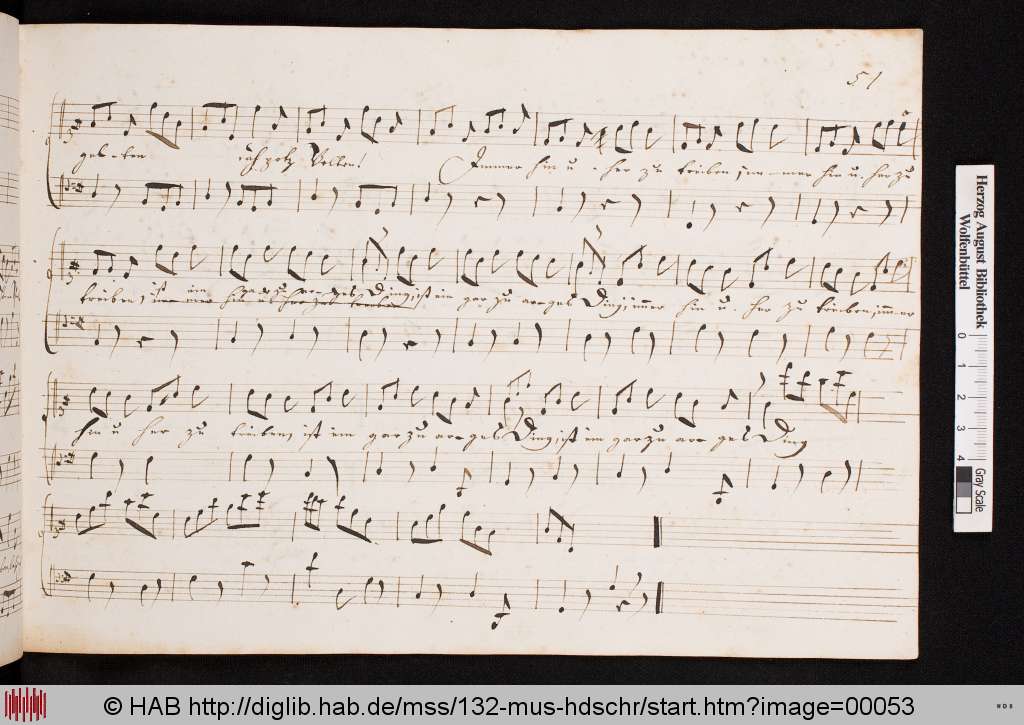 51
Immer hin u. her zu treiben, immer hin u. her zu
treiben, ist ein gar zu arges Ding, ist ein gar zu arges Ding, immer hin u. her zu treiben, immer
hin u her zu treiben, ist ein gar zu arges Ding, ist ein gar zu arges Ding
Herzog August Bibliothek
Wolfenbüttel
0 1 2 3 4
Gray Scale
© HAB http://diglib.hab.de/mss/132-mus-hdschr/start.htm?image=00053